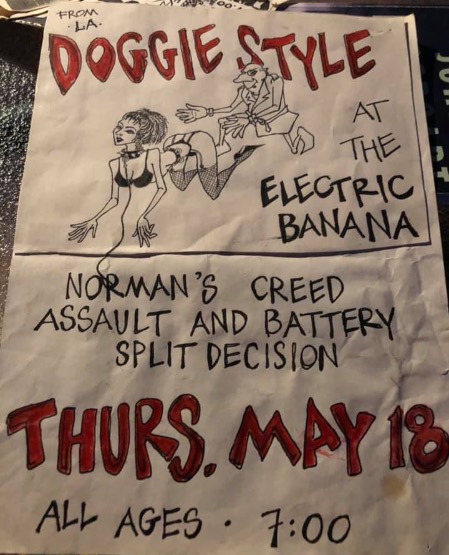 FROM
L.A.
DOGGIE STYLE
AT
THE
ELECTRIC
BANANA
NORMAN'S CREED
ASSAULT AND BATTERY
SPLIT DECISION
THURS. MAY 18
ALL AGES · 7:00